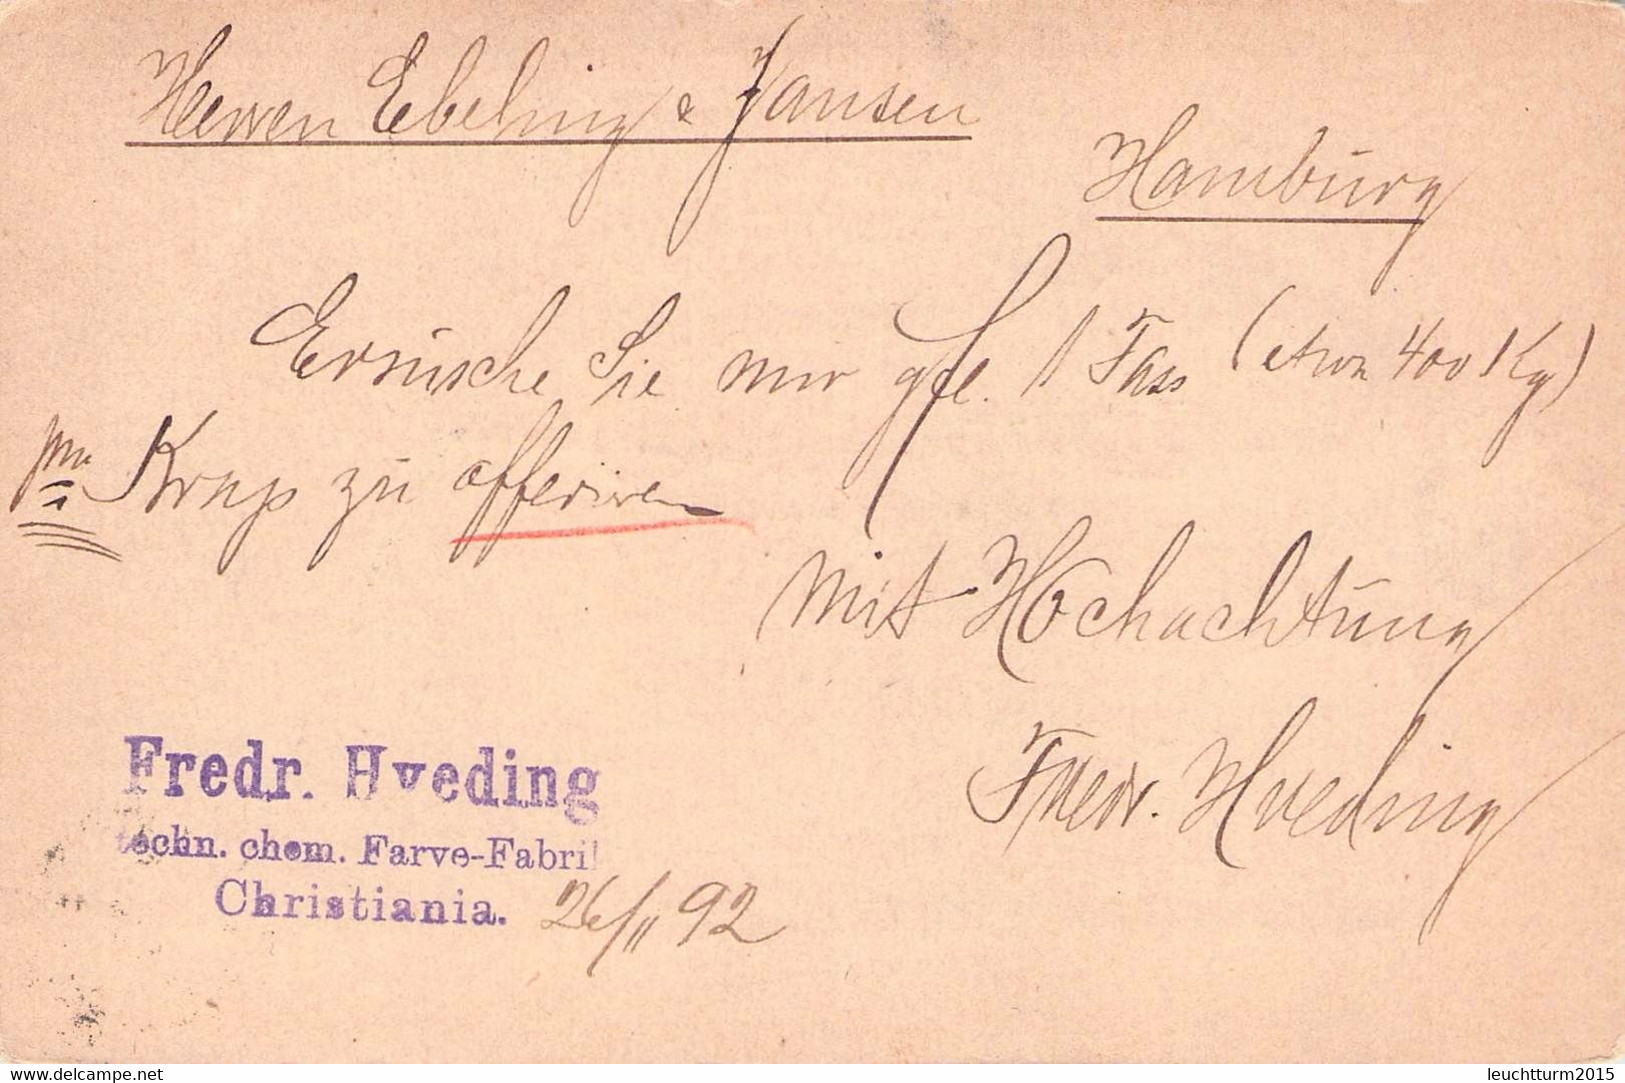 Herren Ebeling & Jansen
Hamburg
Ersuche Sie mir gfl. 1 Fass (etwa 400 Kg)
pma Krap zu offeriren
Mit Hochachtung
Fredr. Hveding
Fredr. Hveding
techn. chem. Farve-Fabrik
Christiania. 26/11 92
delcampe.net
leuchtturm2015